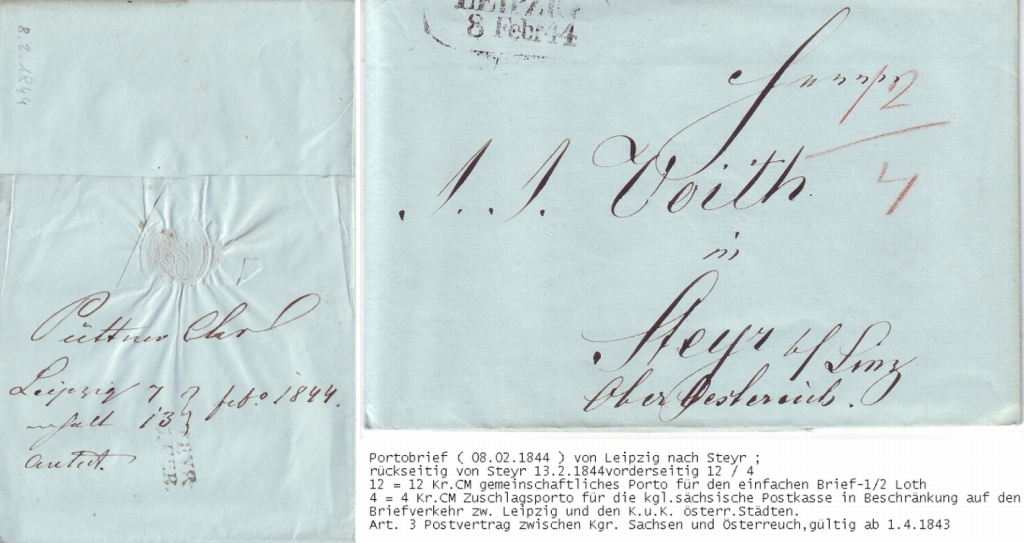 8.2.1844
Püttner Carl
Leipzig 7
13 } febo 1844.
erhalt
antut.
STEYR
LEIPZIG
8 Febr 44
Herrn
12
4
J. J. Voith
in
Steyr b/ Linz
Ober Oesterreich.
Portobrief ( 08.02.1844 ) von Leipzig nach Steyr ;
rückseitig von Steyr 13.2.1844vorderseitig 12 / 4
12 = 12 Kr.CM gemeinschaftliches Porto für den einfachen Brief-1/2 Loth
4 = 4 Kr.CM Zuschlagsporto für die kgl.sächsische Postkasse in Beschränkung auf den
Briefverkehr zw. Leipzig und den K.u.K. österr.Städten.
Art. 3 Postvertrag zwischen Kgr. Sachsen und Österreuch,gültig ab 1.4.1843